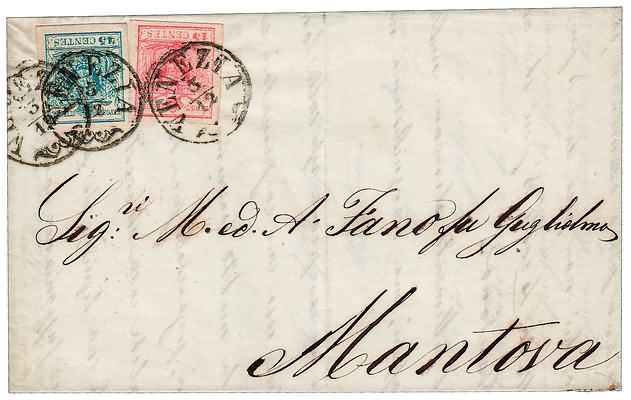 45 CENTES.
15 CENTES.
VENEZIA
VENEZIA
5/12
VENEZIA
5/12
Sig.ri M. ed. A. Fano fu Guglielmo
Mantova